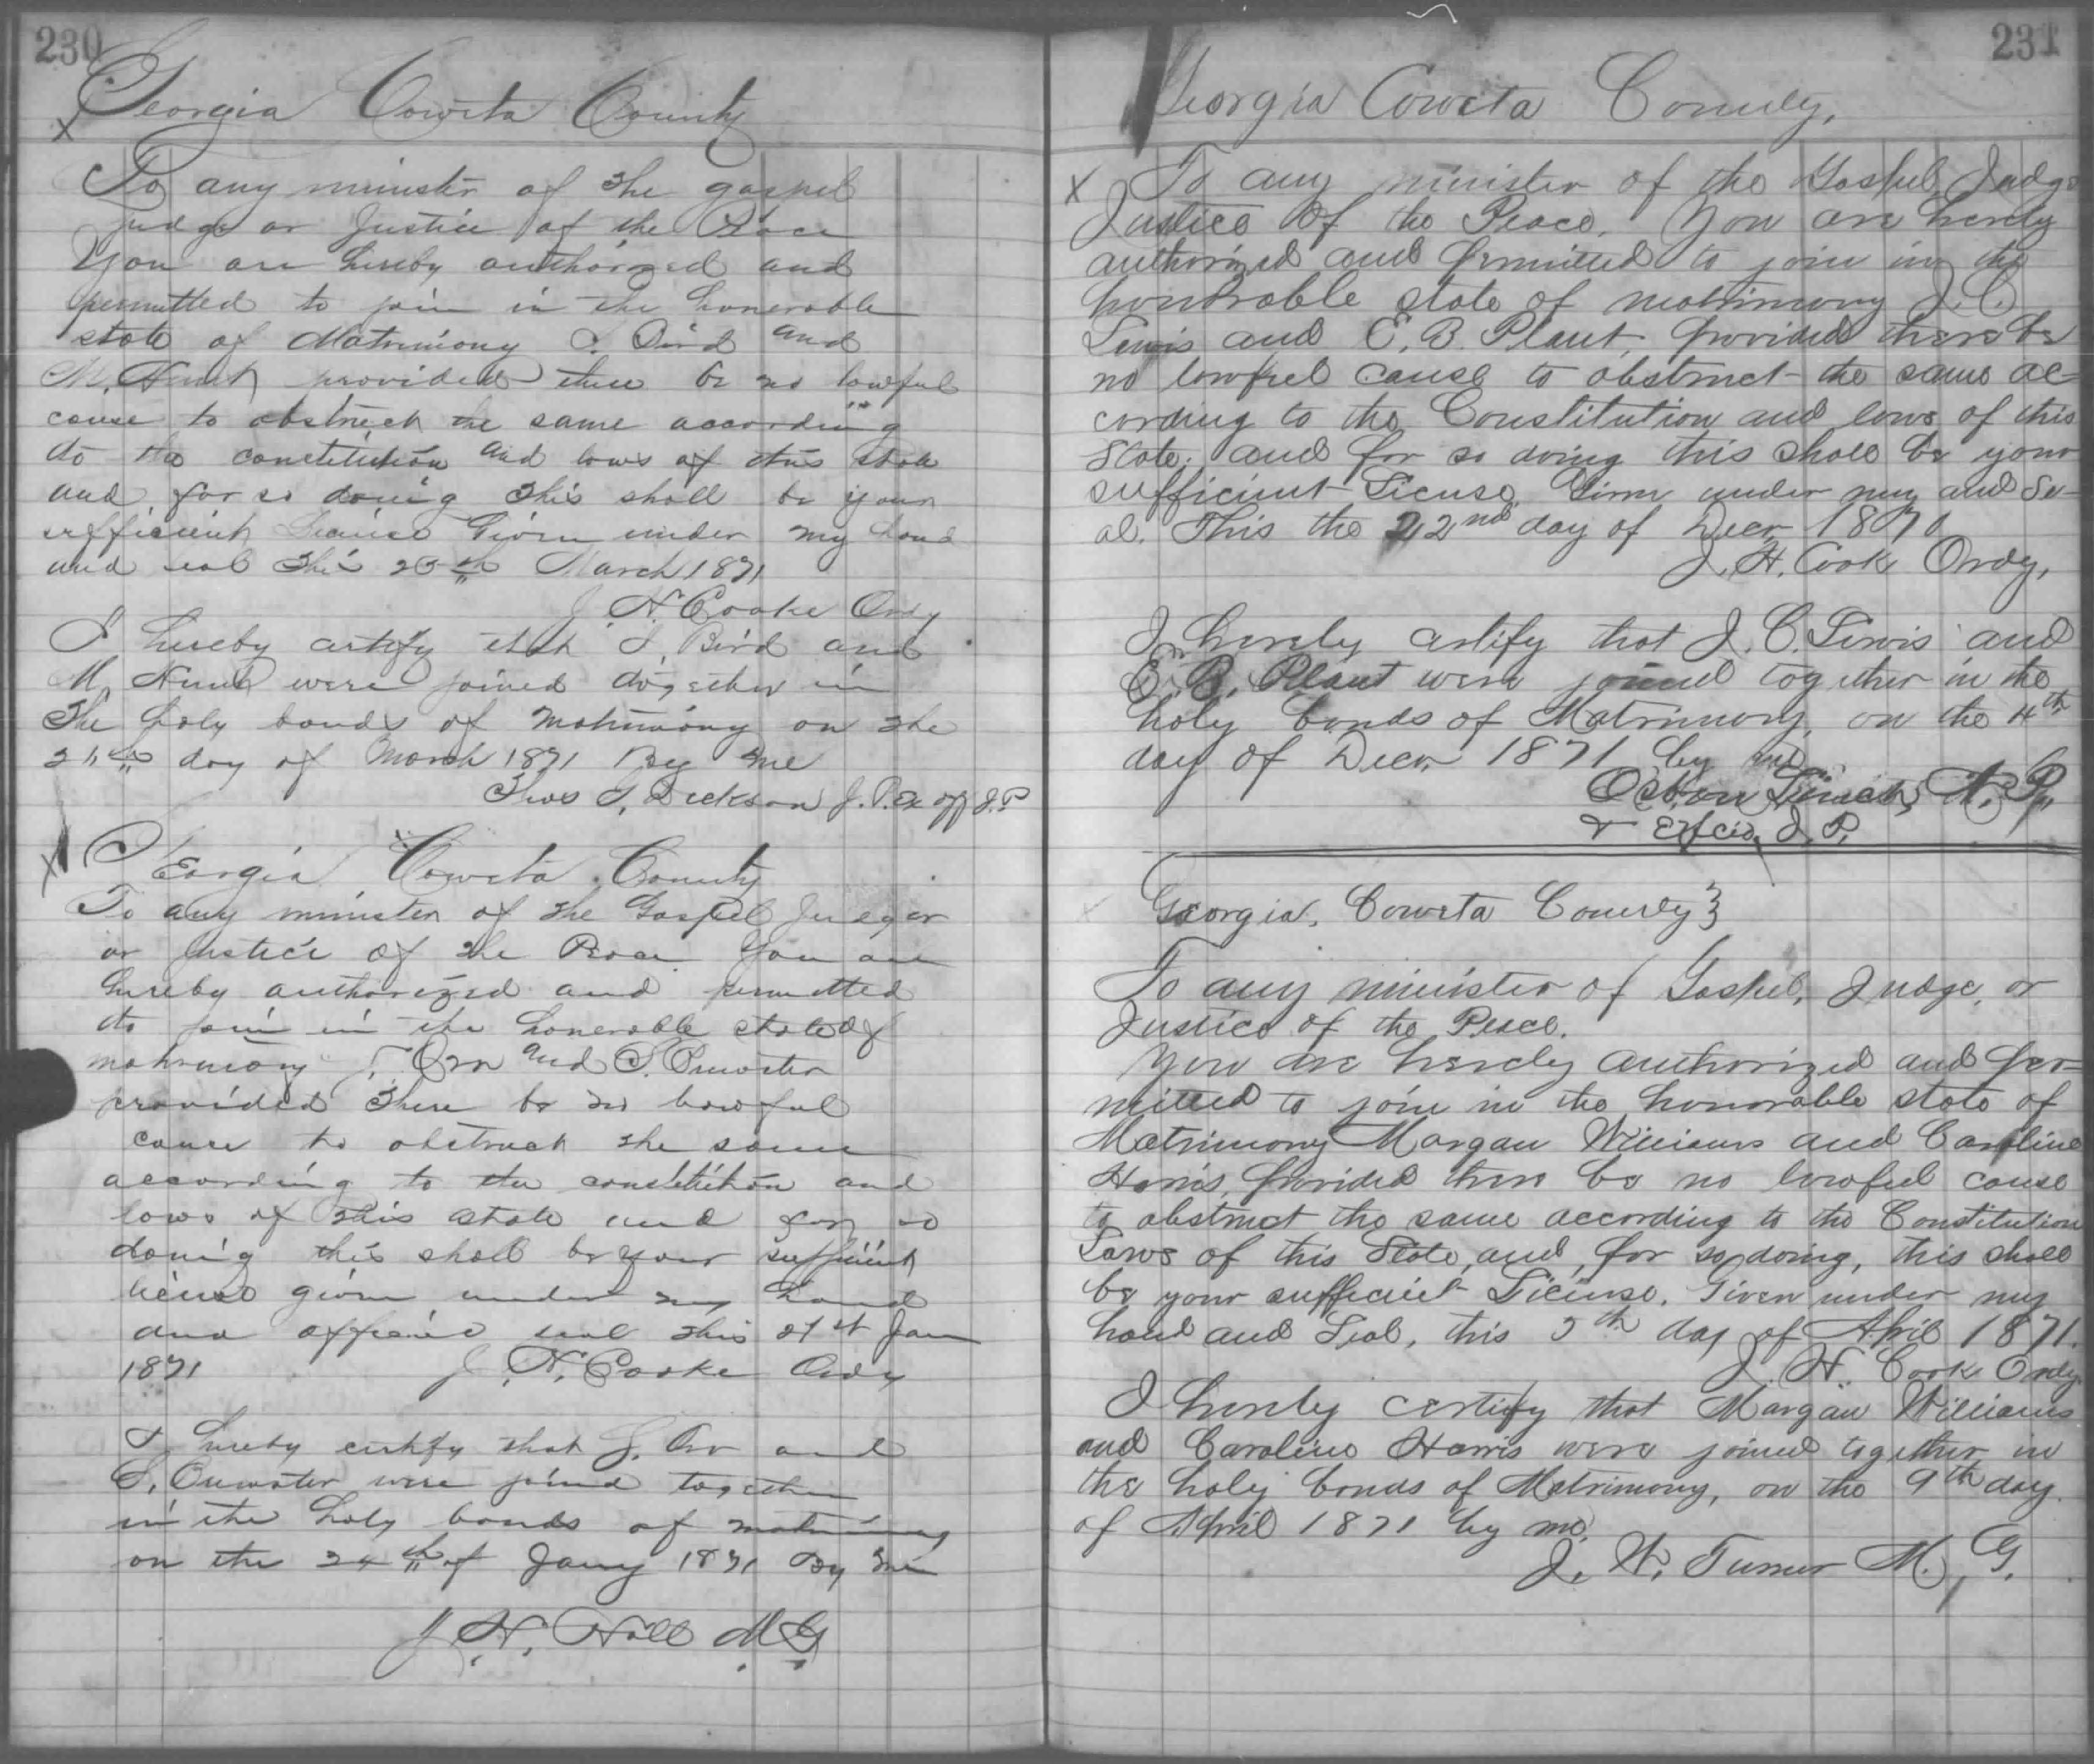 230
Georgia Coweta County
To any minister of the gospel
judge or Justice of the Peace
You are hereby authorized and
permitted to join in the honerable
state of Matrimony Bird and
M. provided there be no lawful
cause to obstruct the same according
to the constitution and laws of this state
and for so doing this shall be your
sufficient License Given under my hand
and seal this March 1871
J. H. Cooke Ordy
I hereby certify that Bird and
M. were joined together in
the holy bonds of matrimony on the
day of March 1871 By me
Thos Dickson J. P. Ex off J. P
Georgia Coweta County
To any minister of the Gospel Judge or
or justice of the Peace You are
hereby authorized and permitted
to join in the honerable state of
matrimony J. Orr and S.
provided there be no lawful
cause to obstruct the same
according to the constitution and
laws of this state and for so
doing this shall be your sufficient
license given under my hand
and official seal this 21st Jan
1871 J. H. Cooke Ordy
I hereby certify that J. Orr and
S. were joined together
in the holy bonds of matrimony
on the 24th of Jany 1871 By me
J. H. Hall M G
231
Georgia Coweta County,
To any minister of the Gospel, Judge
Justice of the Peace. You are hereby
authorized and permitted to join in the
honorable state of matrimony J. C.
Lewis and E. B. Plant, provided there be
no lawful cause to obstruct the same ac-
cording to the Constitution and laws of this
State. and for so doing this shall be your
sufficient License. Given under my and Se-
al. This the 22nd day of Decr. 1870
J. H. Cook Ordy,
I hereby certify that J. C. Lewis and
E. B. Plant were joined together in the
holy bonds of Matrimony, on the 4th
day of Decr. 1871 by me
N. P.
& Exfcio, J. P.
Georgia, Coweta County}
To any minister of Gospel, Judge, or
Justice of the Peace.
You are hereby authorized and per-
mitted to join in the honorable state of
Matrimony Morgan Williams and Caroline
Harris, provided there be no lawful cause
to abstruct the same according to the Constitution
Laws of this State, and, for so doing, this shall
be your sufficient License. Given under my
hand and Seal, this 5th day of April 1871.
J. H. Cook Ordy.
I hereby certify that Morgan Williams
and Caroline Harris were joined together in
the holy bonds of Matrimony, on the 9th day
of April 1871 by me.
J. W. Turner M. G.